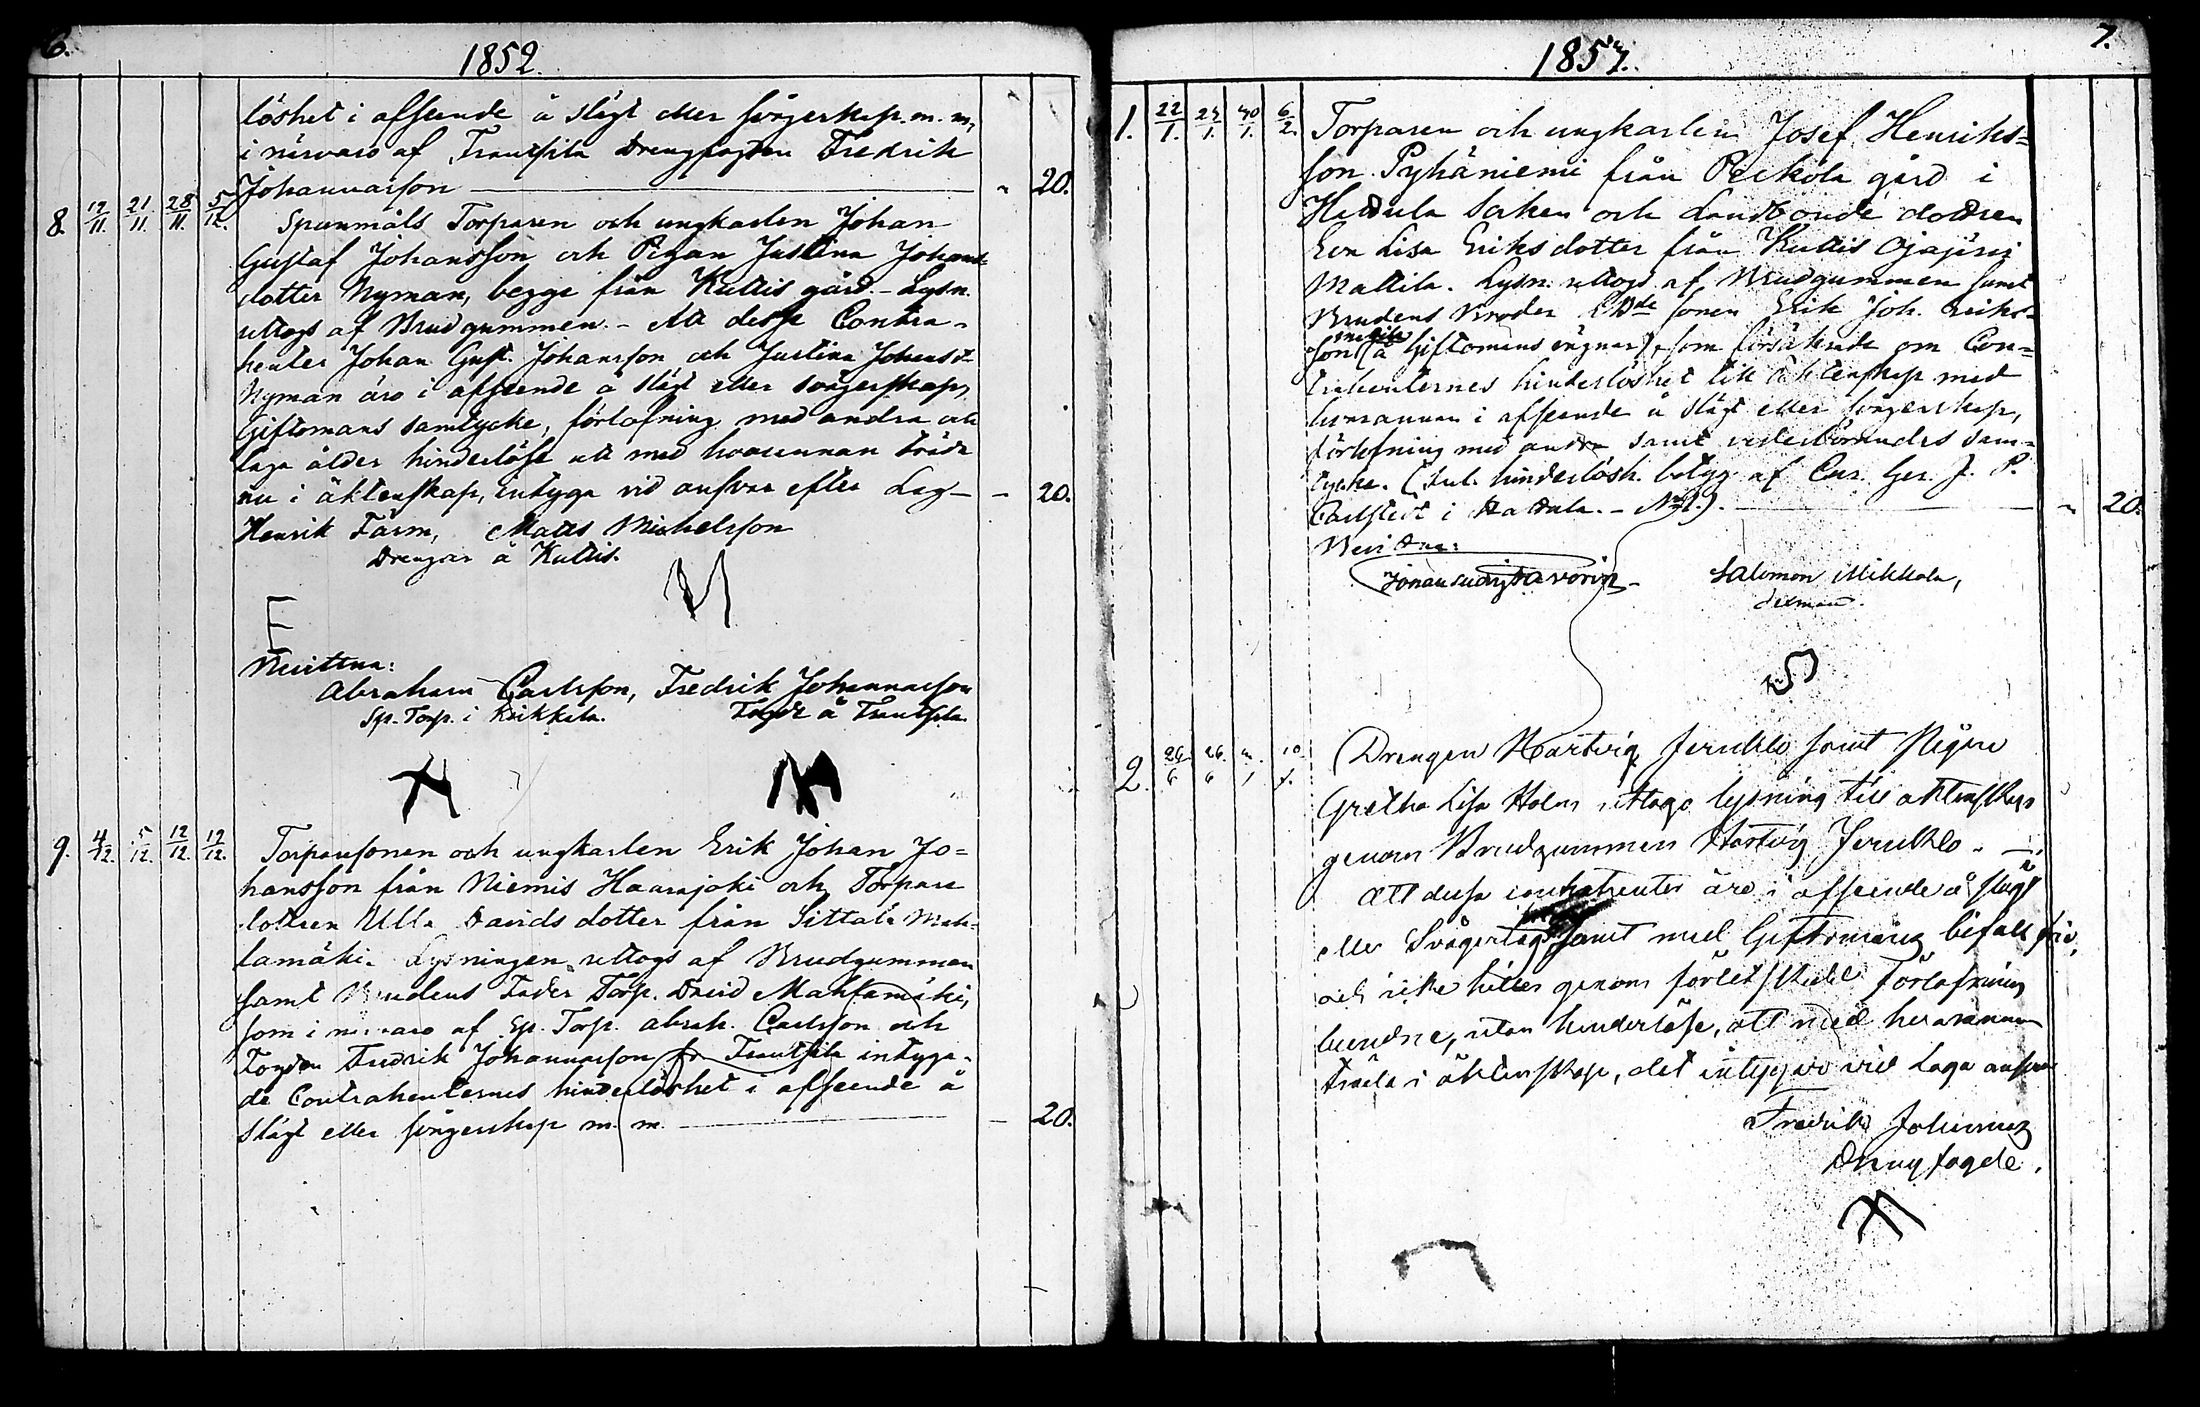 6.
1852.
löshet i afseende å slägt eller svågerskap m. m,
i närvaro af Frantsila Drengfogden Fredrik
Johannasson 20.
8. 17/11. 21/11. 28/11. 5/12. Spanmåls Torparen och ungkarlen Johan
Gustaf Johansson och Pigan Justina Johans
dotter Nyman, begge från Kuttis gård. - Lysn.
uttogs af Brudgummen. - Att desse Contra-
henter Johan Gust. Johansson och Justina Johansd
Nyman äro i afseende å slägt eller svågerskap,
Giftomans samtycke, förlofning med andra och
laga ålder hinderlöse att med hvarannan träda
nu i äktenskap, intyga vid ansvar efter Lag - 20.
Henrik Färm, Matts Michelsson
Drengar å Kuttis.
Bevittna:
Abraham Carlsson, Fredrik Johannasson
Sp. Torp. i Fogde å Frantsila
9. 4/12. 5/12. 12/12. 19/12. Torparesonen och ungkarlen Erik Johan Jo=
hansson från Niemis Haarajoki och Torpare
dottren Ulla Davidsdotter från Sittala Mah-
lamäki. Lysningen uttogs af Brudgummen
samt Brudens Fader Torp. David Mahlamäki,
som i närvaro af Sp. Torp. Abrah. Carlsson och
Fogden Fredrik Johannasson fr. Frantsila intyga-
de Contrahenternes hinderlöshet i afseende å
slägt eller svågerskap m. m. 20.
7.
1857.
1. 22/1. 24/1. 30/1. 6/2. Torparen och ungkarlen Josef Henriks=
son Pyhäniemi från Perkola gård i
Hattula Socken och Landbonde dottren
Eva Lisa Eriksdotter från Kuttis Ojajärvi
Mattila. Lysn. uttogs af Brudgummen samt
Brudens Broder LBde sonen Erik Joh. Eriks-
son (å Giftomans vägnar), som försäkrade om Con=
trahenternes hinderlöshet till äktenskap med
hvarannan i afseende å slägt eller svågerskap,
förlofning med andra samt vederbörandes sam-
tycke. (Enl. hinderlösh. betyg af J. P.
Carlstedt i Hattula. - No 1). 20.
Bevittna:
Johan Salomon Mikkola,
2. 26/6 Drengen Hartvig Jerukklo samt Pigan
Gretha Lisa Holm uttogo lysning till äktenskap
genom Brudgummen Hartvig
Att dessa contrahenter äro i afseende å slägt
eller Svågerlag samt med Giftomans bifall
och icke heller genom förlofning
bundne, utan hinderlöse, att med hvarannan
träda i äktenskap, det intygar vid Laga ansvar
Fredrik
Drengfogde.